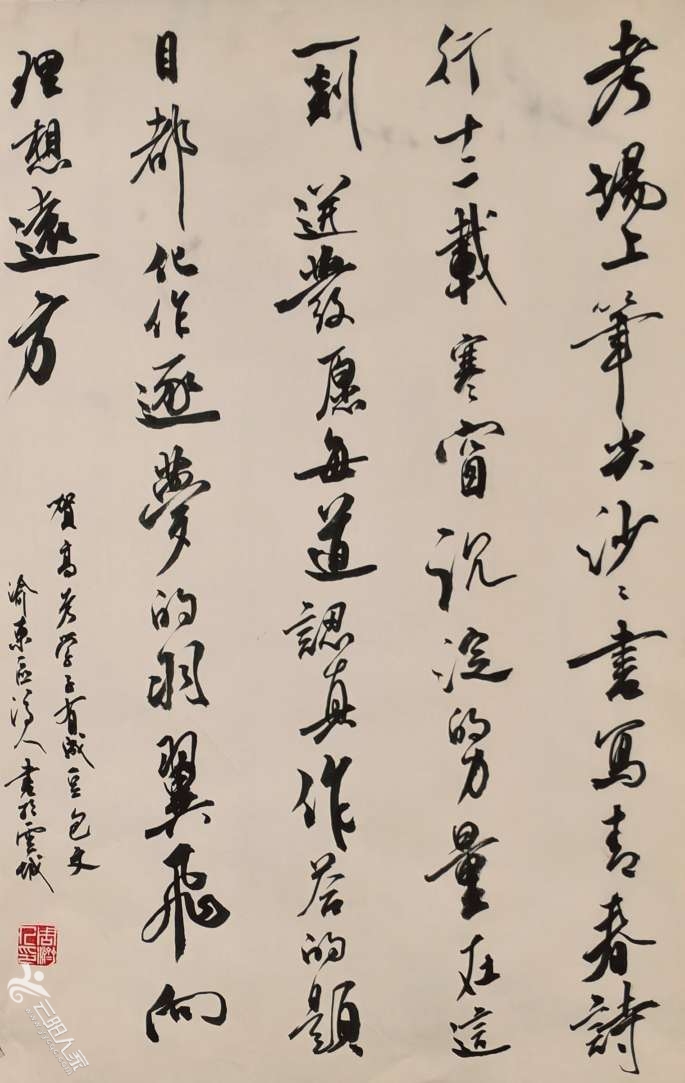 考場上筆尖沙〻書寫青春詩
行十二載寒窗沉淀的力量在這
一刻迸發愿每道認真作答的題
目都化作逐夢的羽翼飛向
理想遠方
賀高考學子有成豆包文
渝東人書於雲城
云阳人家